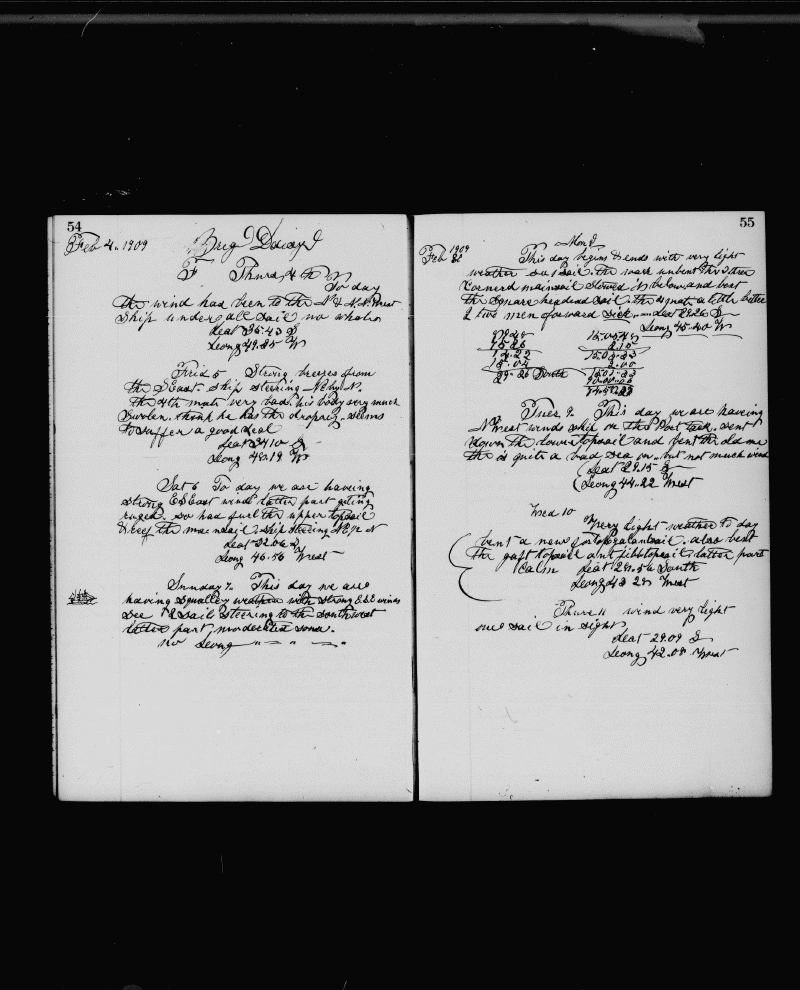 54
Feb 4. 1909 Brig Daisy
Thurs 4th
To day
the wind had been to the N & N.N. West
Ship under all sail no whales
Leat 35.43 S
Leong 49.25 W
Frid 5 Strong breezes from
the S East. ship steering NE by N.
the 4th mate very bad. his body very much
Swolen. think he has the dropsey. seems
to suffer a good deal
Leat 34 10 S
Leong 48.19 W
Sat 6 To day we are having
strong ESEast winds latter part geting
ruged. so had furl the upper topsail
& reef the mainsail. ship steering NE N
Leat 32.06 S
Leong 46.56 West
Sunday 7. This day we are
having Squalley weather with strong ESE winds
See 1 Sail steering to the south west
latter part moderated some.
no Leong " " "
55
Mon
Feb 1909 8 This day begins & ends with very light
weather see 1 sail. the unbent the three
Cornerd mainsail stowed it below and bent
the square headed sail. the 4 mate a little better
2 two men forward sick. Leat 29.26 S
Leong 45.40 W
29.26 South
Tues 9. This day we are having
N West winds ship on the Port tack. sent
down the lower topsail and bent the old one
the is quite a bad sea on. but not much wind
Leat 29.15 S
Leong 44.22 West
Wed 10 Very light weather to day
bent a new fortopgalantsail. also bent
the gaft topsail and jibbtopsail. latter part
Calm Leat 28.56 South
Leong 43 28 West
Thurs 11 wind very light
one sail in sight
Leat 29.09 S
Leong 42.08 West